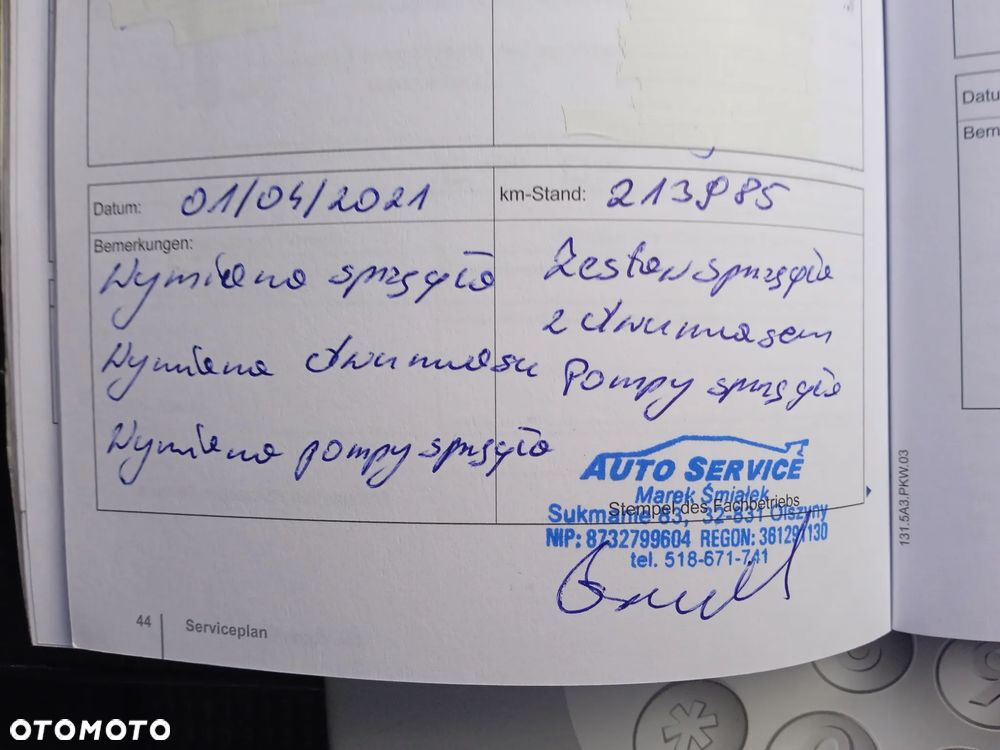 Datum: 01/04/2021
km-Stand: 213985
Bemerkungen:
Wymiana sprzęgła
Wymiana dwumasu
Wymiana pompy sprzęgła
Zestaw sprzęgła
z dwumasem
Pompy sprzęgła
AUTO SERVICE
Marek Śmiałek
Stempel des Fachbetriebs
Sukmanie 83, 32-831 Olszyny
NIP: 8732799604 REGON: 361291130
tel. 518-671-741
44 Serviceplan
131.5A3.PKW.03
Datu
Bem
OTOMOTO